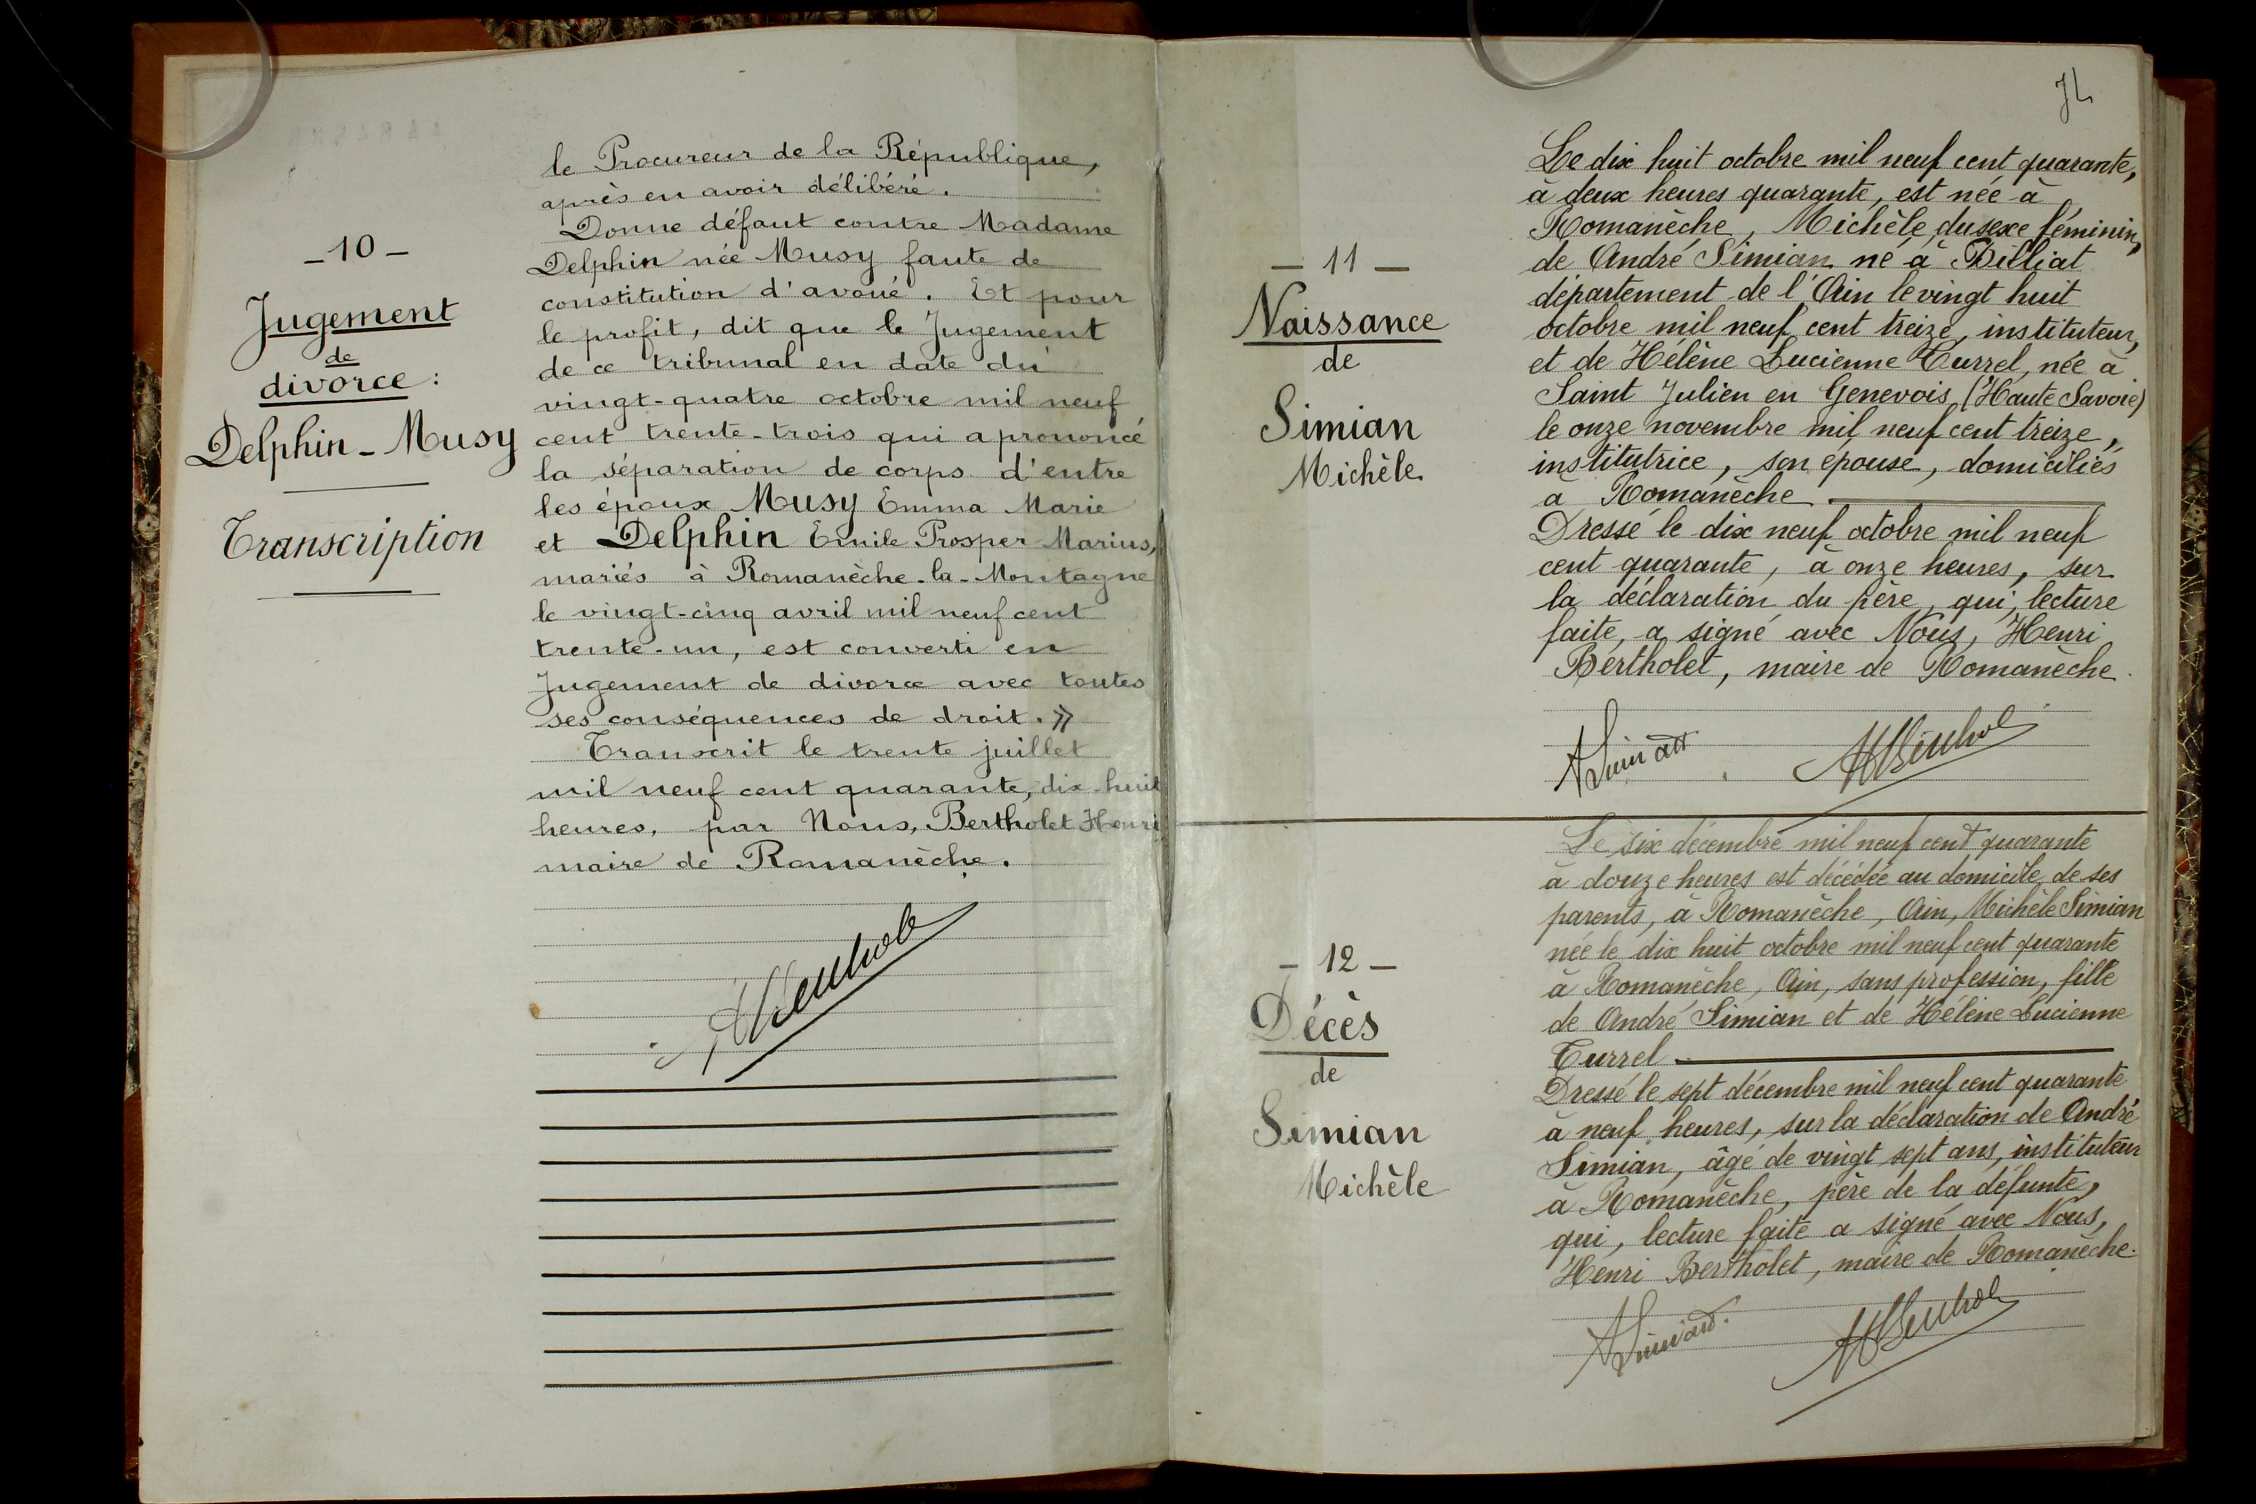 - 10 -
Jugement
de
divorce :
Delphin - Musy
Transcription
le Procureur de la République,
après en avoir délibéré.
Donne défaut contre Madame
Delphin née Musy faute de
constitution d'avoué. Et pour
le profit, dit que le Jugement
de ce tribunal en date du
vingt-quatre octobre mil neuf
cent trente-trois qui a prononcé
la séparation de corps d'entre
les époux Musy Emma Marie
et Delphin Emile Prosper Marius,
mariés à Romanèche-la-Montagne
le vingt-cinq avril mil neuf cent
trente-un, est converti en
Jugement de divorce avec toutes
ses conséquences de droit. »
Transcrit le trente juillet
mil neuf cent quarante, dix-huit
heures, par Nous, Bertholet Henri
maire de Romanèche.
HBertholet
- 11 -
Naissance
de
Simian
Michèle
Le dix huit octobre mil neuf cent quarante,
à deux heures quarante, est née à
Romanèche, Michèle, du sexe féminin,
de André Simian né à Billiat
département de l'Ain le vingt huit
octobre mil neuf cent treize, instituteur,
et de Hélène Lucienne Turrel, née à
Saint Julien en Genevois (Haute Savoie)
le onze novembre mil neuf cent treize,
institutrice, son épouse, domiciliés
à Romanèche
Dressé le dix neuf octobre mil neuf
cent quarante, à onze heures, sur
la déclaration du père, qui, lecture
faite, a signé avec Nous, Henri
Bertholet, maire de Romanèche.
ASimian HBertholet
- 12 -
Décès
de
Simian
Michèle
Le six décembre mil neuf cent quarante
à douze heures est décédée au domicile de ses
parents, à Romanèche, Ain, Michèle Simian
née le dix huit octobre mil neuf cent quarante
à Romanèche, Ain, sans profession, fille
de André Simian et de Hélène Lucienne
Turrel
Dressé le sept décembre mil neuf cent quarante
à neuf heures, sur la déclaration de André
Simian, âgé de vingt sept ans, instituteur
à Romanèche, père de la défunte,
qui, lecture faite a signé avec Nous,
Henri Bertholet, maire de Romanèche.
ASimian HBertholet